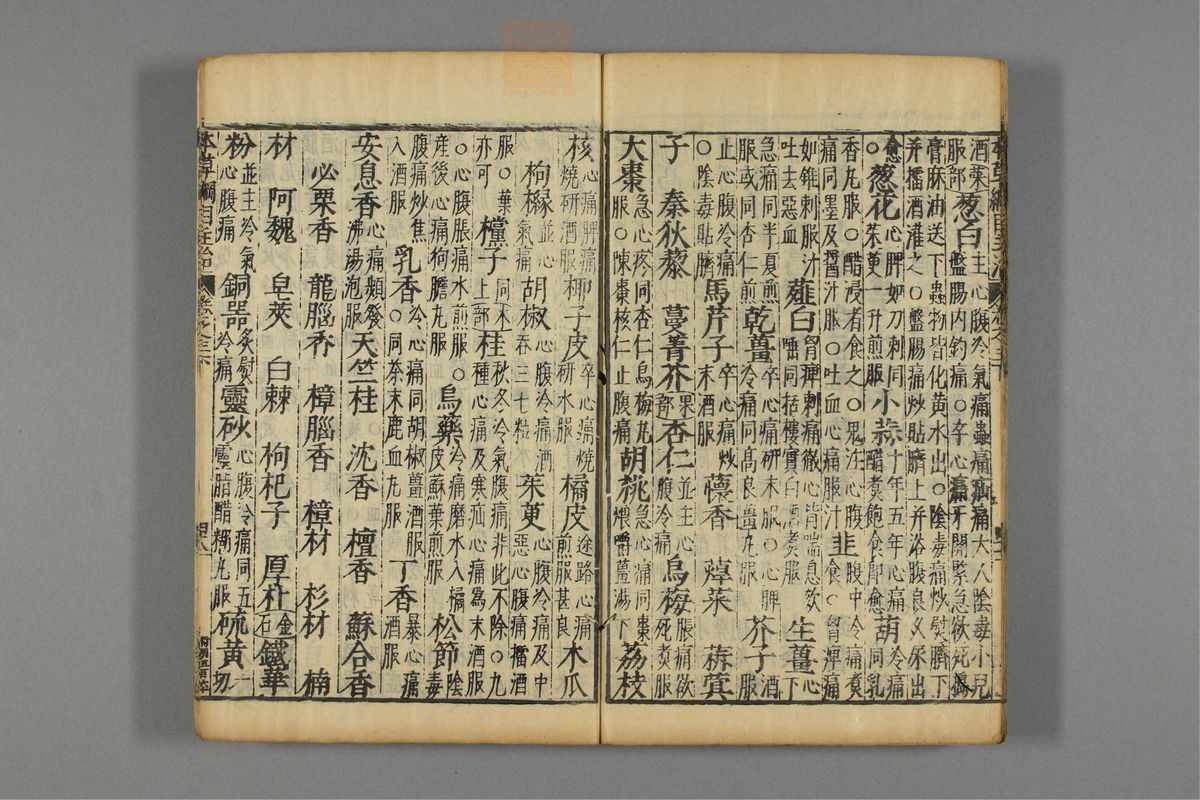 本草綱目主治
酒菜服部葱白主心腹冷氣痛蟲痛疝痛大人陰毒小兒盤腸內釣痛○卒心痛牙關緊急欲死搗
膏麻油送下蟲物皆化黃水出○陰毒痛炒熨臍下并擂酒灌之○盤腸痛炒貼臍上并浴腹良久尿出
愈○葱花心脾如刀刺同茱萸一升煎服小蒜十年五年心痛醋煮飽食即愈葫冷痛同乳
香丸服○醋浸者食之○鬼注心腹痛同墨及醬汁服○吐血心痛服汁韭腹中冷痛煮食○胃痹痛
如錐刺服汁吐去惡血薤白胃痹刺痛徹心背喘息欬唾同栝樓實白酒煮服生薑心下
急痛同半夏煎服或同杏仁煎乾薑卒心痛研末服○心脾冷痛同高良薑丸服芥子酒服
止心腹冷痛○陰毒貼臍馬芹子卒心痛炒末酒服蘹香 蔊菜 蕛箕
子 秦荻藜 蔓菁芥果部杏仁並主心腹冷痛烏梅脹痛欲死煮服
大棗急心疼同杏仁烏梅丸服○陳棗核仁止腹痛胡桃急心痛同棗煨嚼薑湯下荔枝
核心痛脾痛燒研酒服椰子皮卒心痛燒研水服橘皮途路心痛煎服甚良木瓜
枸櫞並心氣痛胡椒心腹冷痛酒吞三七粒茱萸心腹冷痛及中惡心腹痛擂酒
服○葉亦可欓子同上木部桂秋冬冷氣腹痛非此不除○九種心痛及寒疝心痛為末酒服
○心腹脹痛水煎服○產後心痛狗膽丸服烏藥冷痛磨水入橘皮蘇葉煎服松節陰毒
腹痛炒焦入酒服乳香冷心痛同胡椒薑酒服○同茶末鹿血丸服丁香暴心痛酒服
安息香心痛頻發沸湯泡服天竺桂 沈香 檀香 蘇合香
必栗香 龍腦香 樟腦香 樟材 杉材 楠
材 阿魏 皂莢 白棘 枸杞子 厚朴金石鐵華
粉並主冷氣心腹痛銅器炙熨冷痛靈砂心腹冷痛同五靈脂醋糊丸服硫黃一切
本草綱目主治